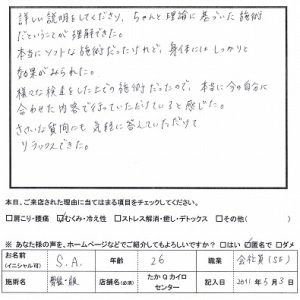 詳しい説明をしてくださり、ちゃんと理論に基づいた施術
だということが理解できた。
本当にソフトな施術だったけれど、身体にはしっかりと
効果がみられた。
様々な検査をした上での施術だったので、本当に今の自分に
合わせた内容で行っていただけていると感じた。
ささいな質問にも気軽に答えていただけて
リラックスできた。
本日、ご来店された理由に当てはまる項目をチェックしてください。
□肩こり・腰痛 ☑むくみ・冷え性 □ストレス解消・癒し・デトックス □その他( )
※ あなた様の声を、ホームページなどでご紹介してもよろしいですか? □はい ☑匿名で □ダメ
お名前 (イニシャル可) S.A. 年齢 26 職業 会社員(SE)
施術名 骨盤・顔 店舗名(必須) たかQカイロセンター 記入日 2011年5月3日